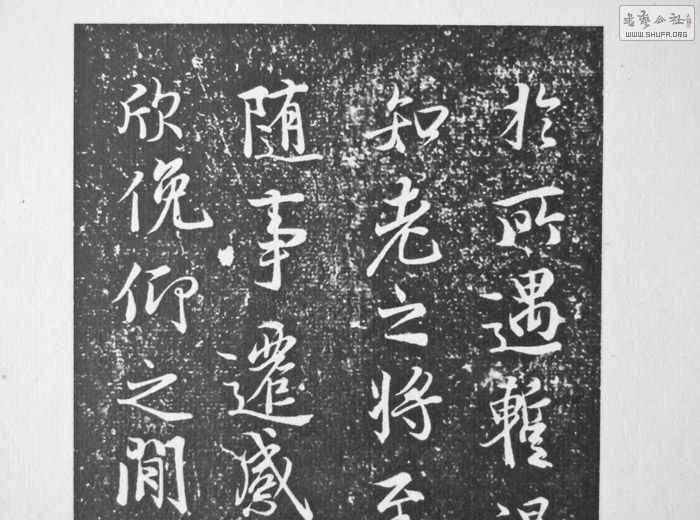 於所遇暫得
知老之将至
随事遷感
欣俛仰之閒
書藝公社
WWW.SHUFA.ORG